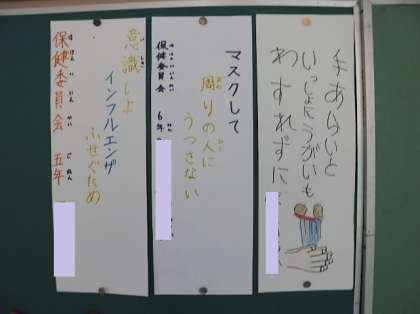 手あらいと
いっしょにうがいも
わすれずに
マスクして
周りの人に
うつさない
保健委員会 6年
意識しよ
インフルエンザ
ふせぐため
保健委員会 五年